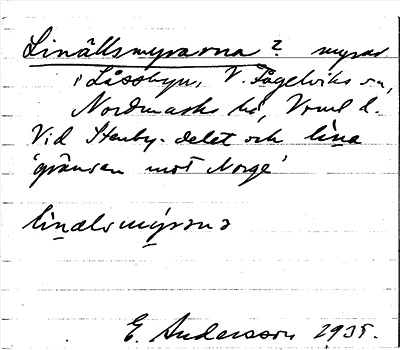 Linällsmyrarna? myrar
i Låssbyn, V. Fågelviks sn,
Nordmarks hd, Vrml d.
Vid Stenby-delet och lina
'gränsen mot Norge'
linælsmýrana
E. Andersson 1935.